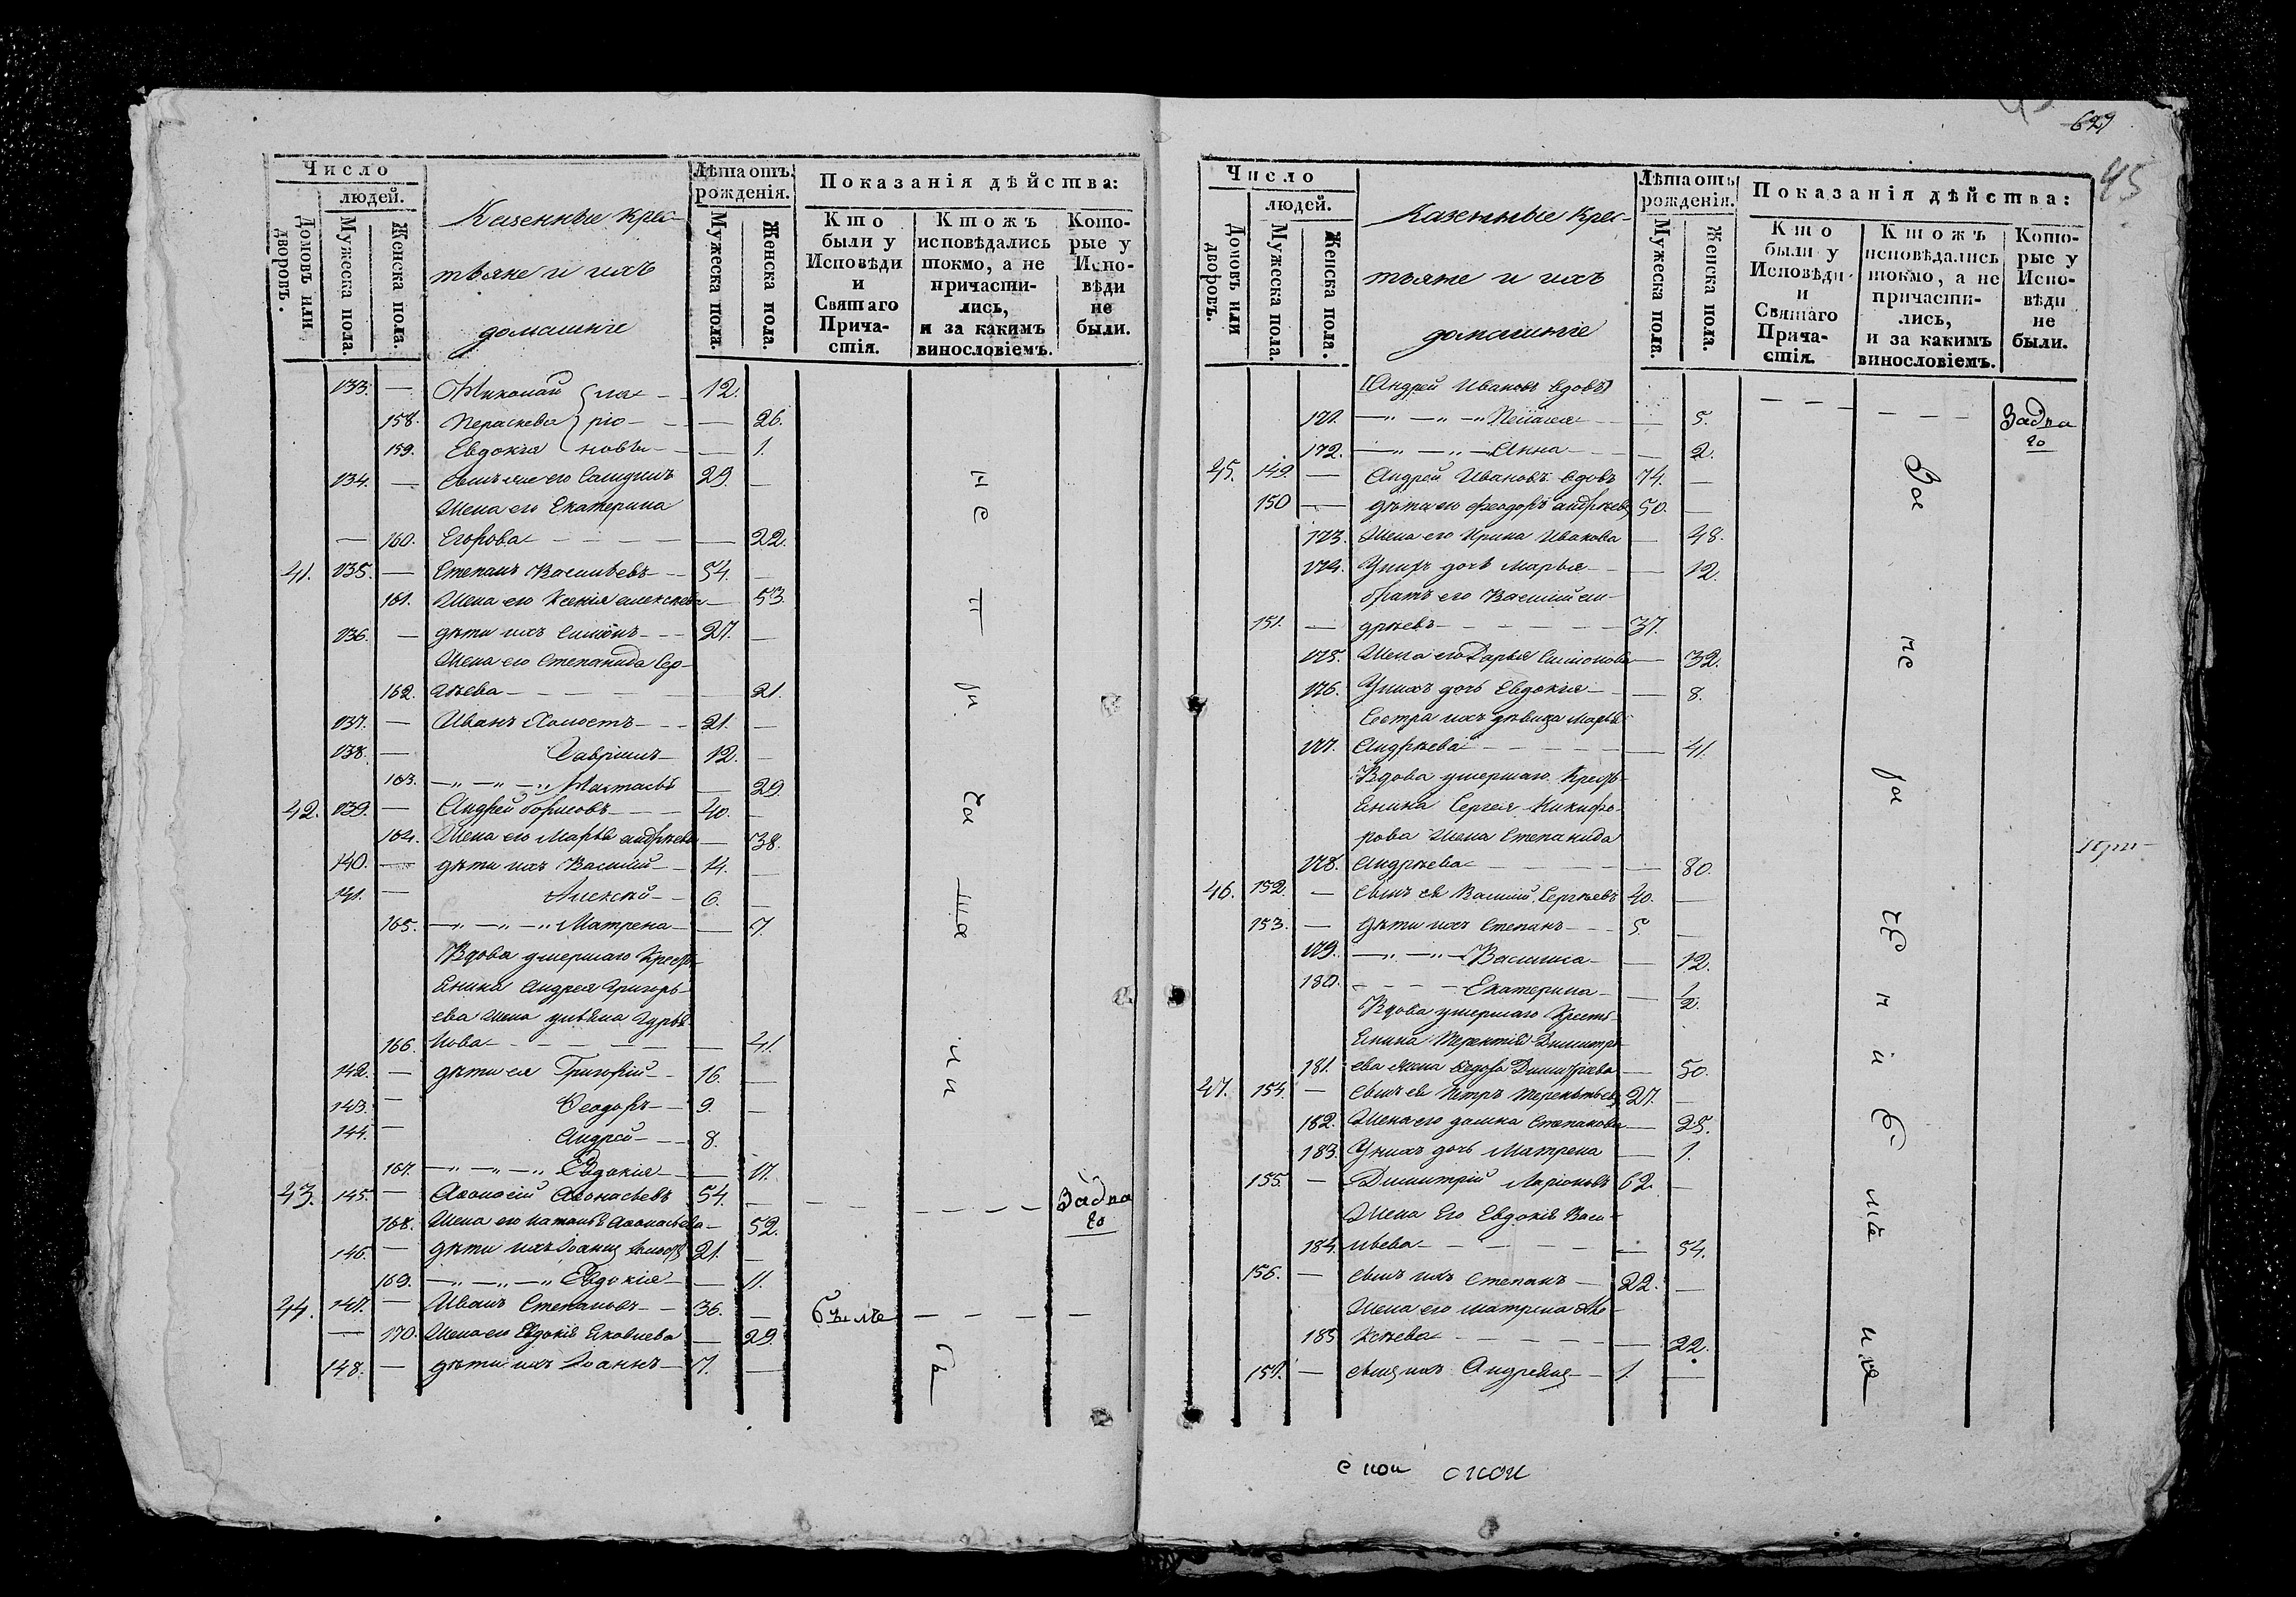 Число
людей.
Домовъ или дворовъ.
Мужеска пола.
Женска пола.
Казенные крес-
тьяне и ихъ
домашніе
Лѣта отъ рожденія.
Мужеска пола.
Женска пола.
Показанія дѣйства:
Кто были у Исповѣди и Святаго Прича- стія.
Ктожъ исповѣдались токмо, а не причасти- лись, и за какимъ винословіемъ.
Кото- рые у Испо- вѣди не были.
133. — Николай 12.
158. Параскева — 26.
159. Евдокія — 1.
134. — 29. —
Жена его Екатерина
— 160. Егорова — 22.
41. 135. — Степанъ Васильевъ 54. —
161. Жена его Ксенія Алексѣева — 53
136. — дѣти ихъ Симонъ 27. —
Жена его Степанида Сер-
162. гѣева — 21.
137. — Иванъ Холостъ 21. —
138. — Гавріилъ 12. —
163. Настасья — 29.
42. 139. — Андрей Борисовъ 40. —
164. Жена его Марья Андрѣева — 38.
140. — дѣти ихъ Василій 14. —
141. — Алексѣй 6. —
165. Матрена — 7.
Вдова умершаго Кресть-
янина Андрея Григорь-
ева жена
166. нова — 41.
142. — дѣти ея Григорій 16. —
143. — Ѳеодоръ 9. —
144. — Андрей 8.
167. Евдокія — 17.
43. 145. — Аѳонасій Аѳонасьевъ 54. — Задна
го
168. Жена его Наталья Аѳонасьева — 52.
146. — дѣти ихъ Іоаннъ 21. —
169. Евдокія — 11.
44. 147. — Иванъ Степановъ 36. — былъ
— 170. Жена его Евдокія Яковлева — 29.
148. — дѣти ихъ Іоаннъ 7. —
629
45
Число
людей.
Домовъ или дворовъ.
Мужеска пола.
Женска пола.
Казенные крес-
тьяне и ихъ
домашніе
Лѣта отъ рожденія.
Мужеска пола.
Женска пола.
Показанія дѣйства:
Кто были у Исповѣди и Святаго Прича- стія.
Ктожъ исповѣдались токмо, а не причасти- лись, и за какимъ винословіемъ.
Кото- рые у Испо- вѣди не были.
Андрей Ивановъ вдовъ
171. Пелагея — 5. Задна
го
172. Анна — 2.
45. 149. — Андрей Ивановъ вдовъ 74. —
150 — дѣти его Ѳеодоръ Андрѣевъ 50. —
173. Жена его Ирина Иванова — 48.
174. У нихъ дочь Марья — 12.
братъ его Василій Ан-
151. — дрѣевъ 37.
175. Жена его Дарья Симонова — 32.
176. У нихъ дочь Евдокія — 8.
Сестра ихъ дѣвица Марья
177. Андрѣева — 41.
Вдова умершаго Кресть-
янина Сергея Никифо-
рова жена Степанида
178. Андрѣева — 80.
46. 152. — сынъ ея Василій Сергѣевъ 40. —
153. — дѣти ихъ Степанъ 5. —
179. Василиса — 12.
180. Екатерина — 1/2.
Вдова умершаго Кресть-
янина Терентія Димитрі-
181. ева жена Ѳедора Димитріева — 50.
47. 154. — сынъ ея Петръ Терентьевъ 27. —
182. Жена его Домна Степанова — 25.
183. У нихъ дочь Матрена — 1.
155. — Димитрій Ларіоновъ 62. —
Жена Его Евдокія Васи-
184. льева — 54.
156. — сынъ ихъ Степанъ 22. —
Жена его Матрена Але-
185 ксѣева — 22.
157. — сынъ ихъ Андреянъ 1. —